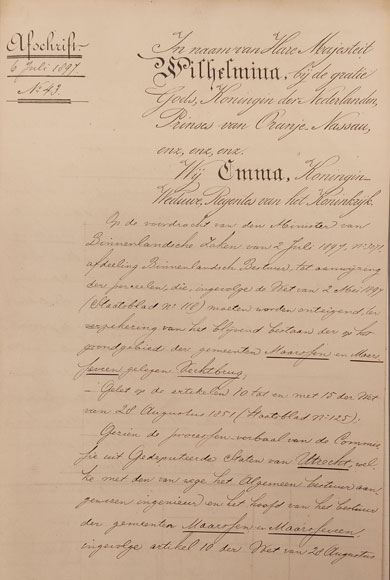 Afschrift.
6 Juli 1897.
No. 43.
In naam van Hare Majesteit
Wilhelmina, bij de gratie
Gods, Koningin der Nederlanden,
Prinses van Oranje-Nassau,
enz, enz, enz.
Wij Emma, Koningin-
Weduwe, Regentes van het Koninkrijk.
Op de voordracht van den Minister van
Binnenlandsche Zaken van 2 Juli 1897, no.
afdeeling Binnenlandsch Bestuur, tot aanwijzing
der perceelen, die ingevolge de Wet van 2 Mei 1897
(Staatsblad no. 118) moeten worden onteigend, ter
verzekering van het blijvend bestaan der op het
grondgebied der gemeenten Maarssen en Maars-
seveen gelegen Rechtbrug.
Gelet op de artikelen 10 tot en met 15 der Wet
van 28 Augustus 1851 (Staatsblad no. 125).
Gezien de processen-verbaal van de Commis-
sie uit Gedeputeerde Staten van Utrecht, wel-
ke met den van wege het Algemeen bestuur aan-
gewezen ingenieur en het hoofd van het bestuur
der gemeenten Maarssen en Maarsseveen,
ingevolge artikel 10 der Wet van 28 Augustus